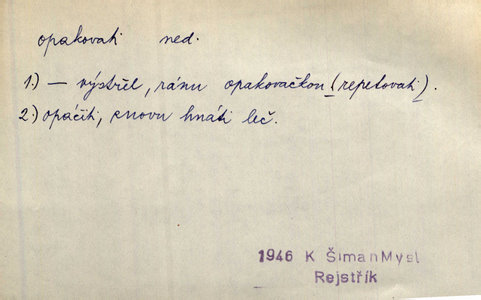 opakovati ned.
1.) — výstřel, ránu opakovačkou (repetovati).
2.) opáčiti, znovu hnáti leč.
1946 K Šiman Mysl
Rejstřík